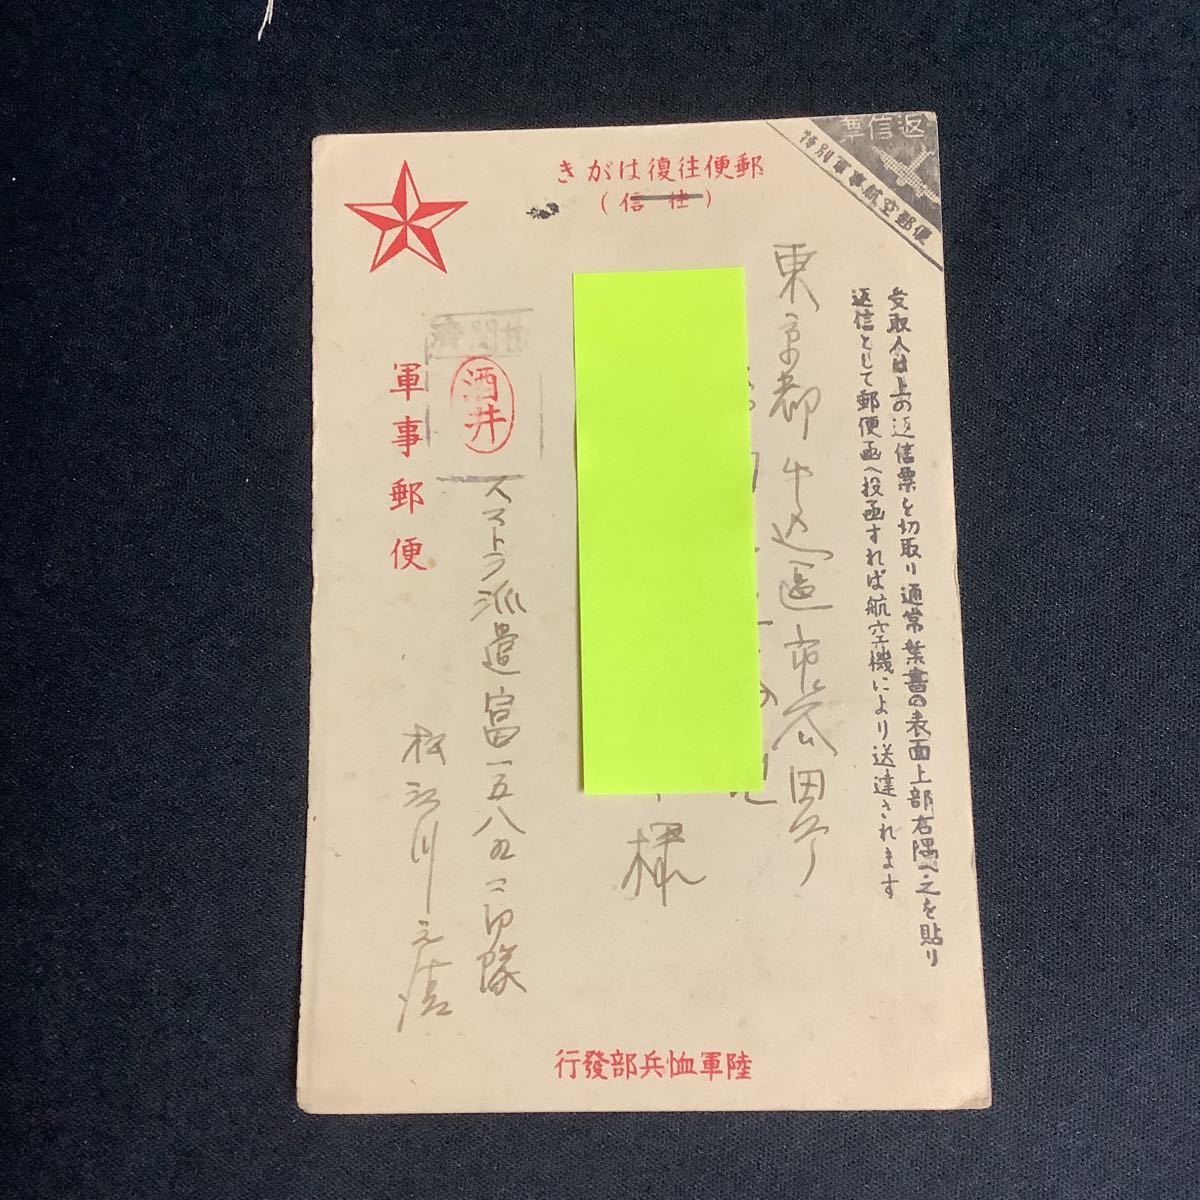 返信票
特別軍事航空郵便
郵便往復はがき
(往信)
受取人は上の返信票を切取り通常葉書の表面上部右隅へ之を貼り
返信として郵便函へ投函すれば航空機により送達されます
東京都牛込區市谷田町
様
検閲済
酒井
軍事郵便
スマトラ派遣富一五八九二部隊
陸軍恤兵部發行